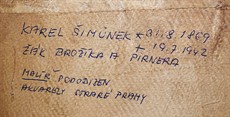 KAREL ŠIMŮNEK * 31.8.1869
† 19.7.1942
ŽÁK BROŽÍKA A PIRNERA
MALÍŘ PODOBIZEN
AKVARELY STARÉ PRAHY